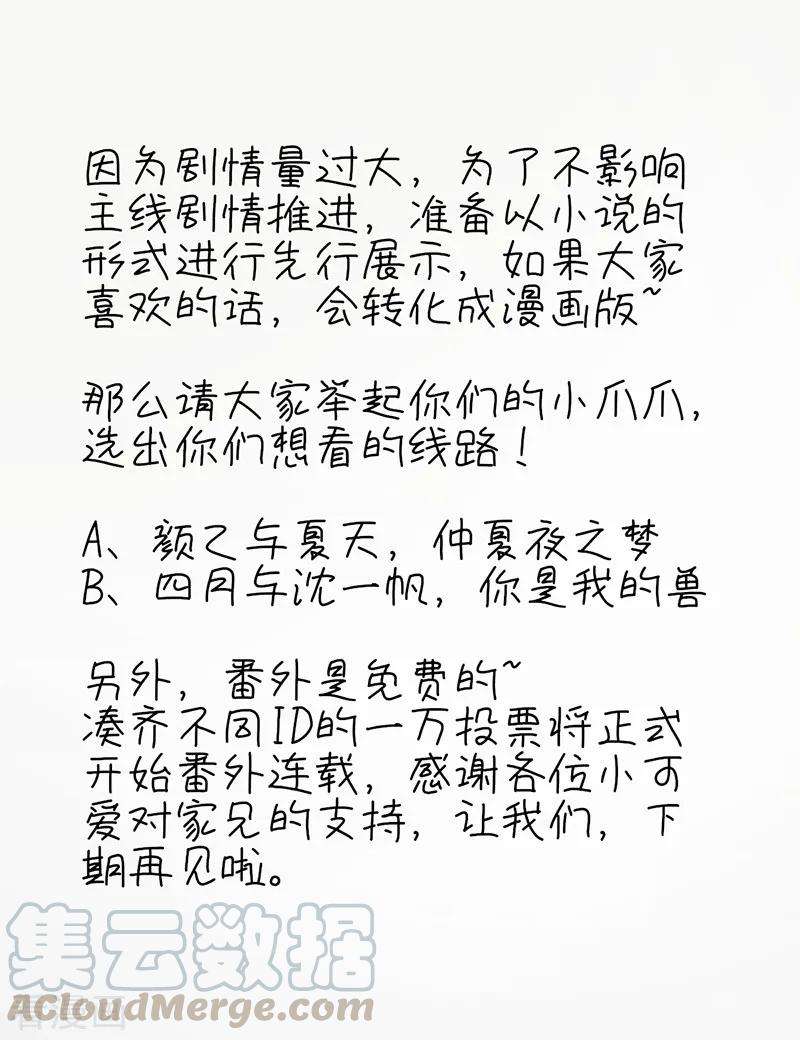 因为剧情量过大，为了不影响
主线剧情推进，准备以小说的
形式进行先行展示，如果大家
喜欢的话，会转化成漫画版~
那么请大家举起你们的小爪爪，
选出你们想看的线路！
A、颜乙与夏天，仲夏夜之梦
B、四月与沈一帆，你是我的兽
另外，番外是免费的~
凑齐不同ID的一万投票将正式
开始番外连载，感谢各位小可
爱对家兄的支持，让我们，下
期再见啦。
集云数据
ACloudMerge.com